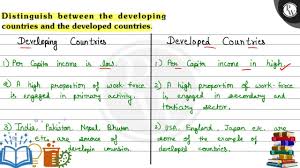 Distinguish between the developing
countries and the developed countries.
Developing Countries
1) Per Capita income is low.
2) A high proportion of work-force
is engaged in primary activity.
3) India, Pakistan, Nepal, Bhutan
etc. are
Developed Countries
1) Per Capita income is high.
2) A high proportion of work-force
is engaged in secondary and
tertiary sector.
3) USA, England, Japan etc. are
some of the example of
developed countries.